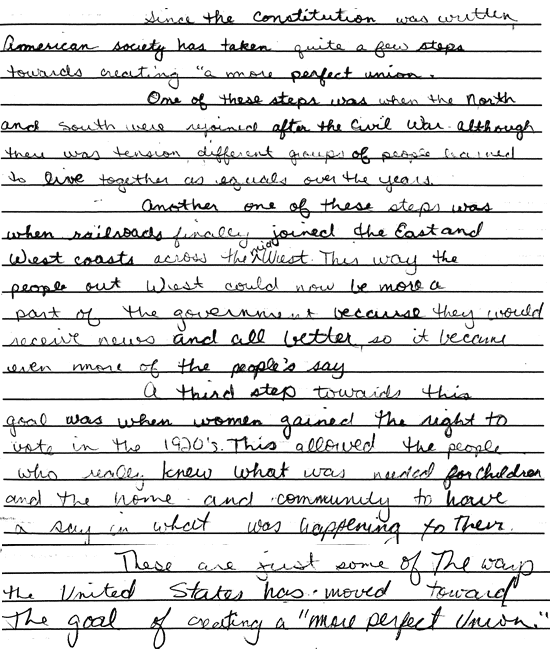 Since the constitution was written,
American society has taken quite a few steps
towards creating "a more perfect union.
One of these steps was when the North
and South were rejoined after the Civil War. although
there was tension, different groups of people learned
to live together as equals over the years.
Another one of these steps was
when railroads finally joined the East and
West coasts across the mid West. This way the
people out West could now be more a
part of the government because they would
receive news and all better, so it became
even more of the people's say
A third step towards this
goal was when women gained the right to
vote in the 1920's. This allowed the people
who really knew what was needed for children
and the home and community to have
a say in what was happening to them.
These are just some of The ways
the United States has moved toward
The goal of creating a "more perfect Union."